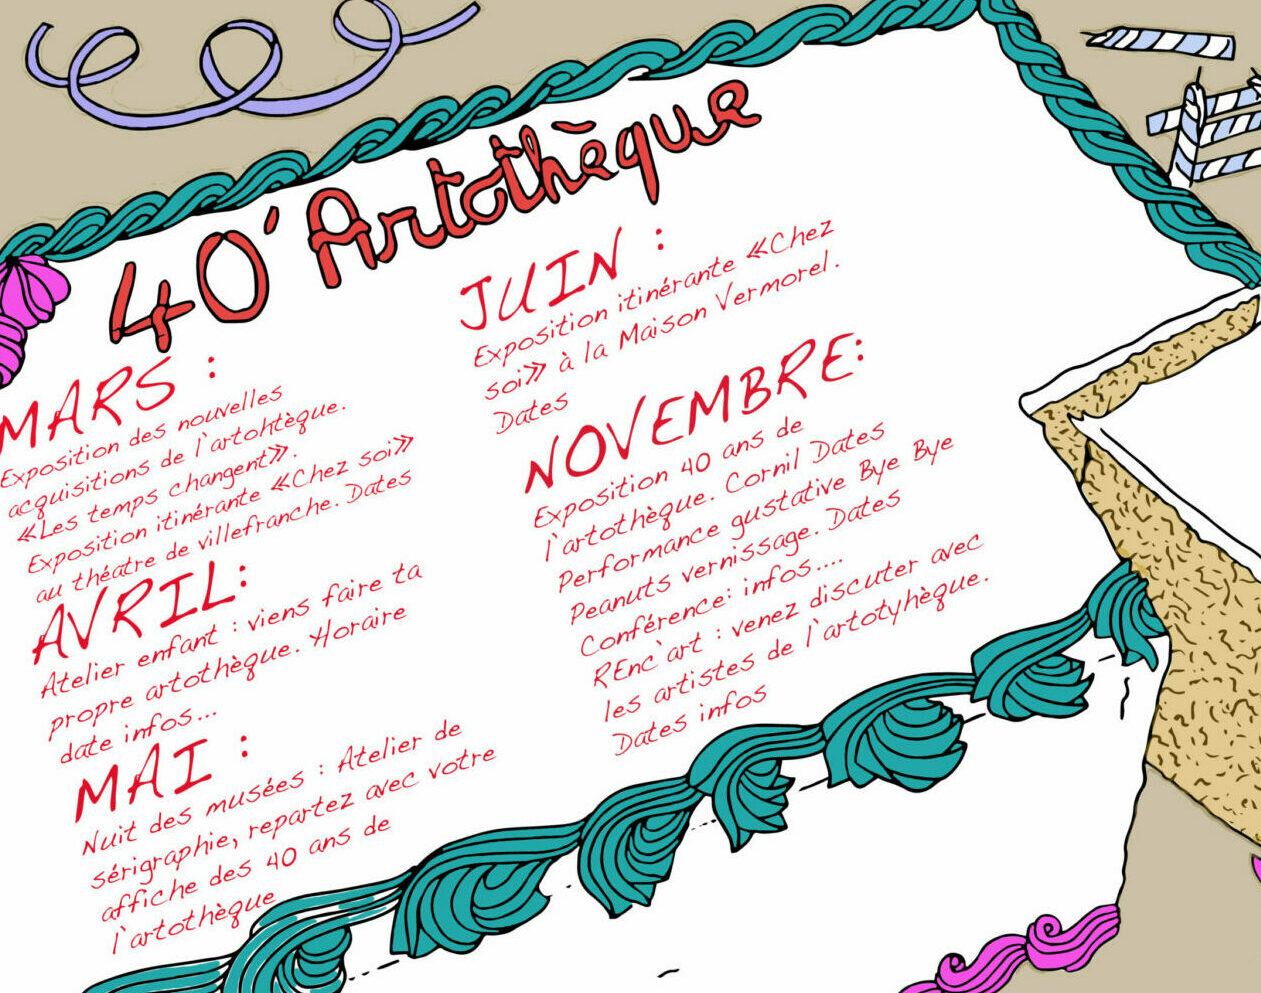 40' Artothèque
MARS :
Exposition des nouvelles
acquisitions de l'artohtèque.
«Les temps changent».
Exposition itinérante «Chez soi»
au théatre de villefranche. Dates
AVRIL:
Atelier enfant : viens faire ta
propre artothèque. Horaire
date infos...
MAI :
Nuit des musées : Atelier de
sérigraphie, repartez avec votre
affiche des 40 ans de
l'artothèque
JUIN :
Exposition itinérante «Chez
soi» à la Maison Vermorel.
Dates
NOVEMBRE:
Exposition 40 ans de
l'artothèque. Cornil Dates
Performance gustative Bye Bye
Peanuts vernissage. Dates
Conférence: infos....
REnc'art : venez discuter avec
les artistes de l'artotyhèque.
Dates infos